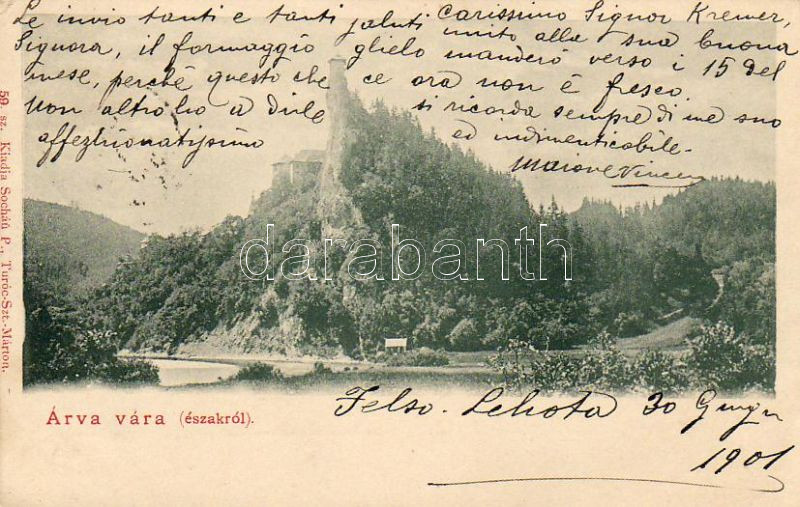 Le invio tanti e tanti saluti carissimo Signor Kremer,
unito alla sua buona
Signora, il formaggio glielo manderò verso i 15 del
mese, perché questo che ce ora non è fresco.
Non altro ho a dirle si ricorda sempre di me suo
affezhionatissimo ed indimenticabile.
Maiove Vincen
59. sz. Kiadja Socháň P., Turóc-Szt.-Márton.
darabanth
Árva vára (északról).
Felso. Lehota 30 Giugn
1901